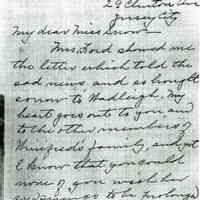 29 Clinton Ave
Jersey City
My dear Miss Snow
Mrs. Ford showed me
the letter which told the
sad news and as brought
sorrow to Hadleigh. My
heart goes out to you and
to the other members of
Winifred's family, and yet
I know that you could
none of you wish her
to be prolonged